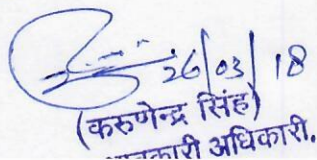 26/03/18
(करुणेन्द्र सिंह)
अधिकारी.